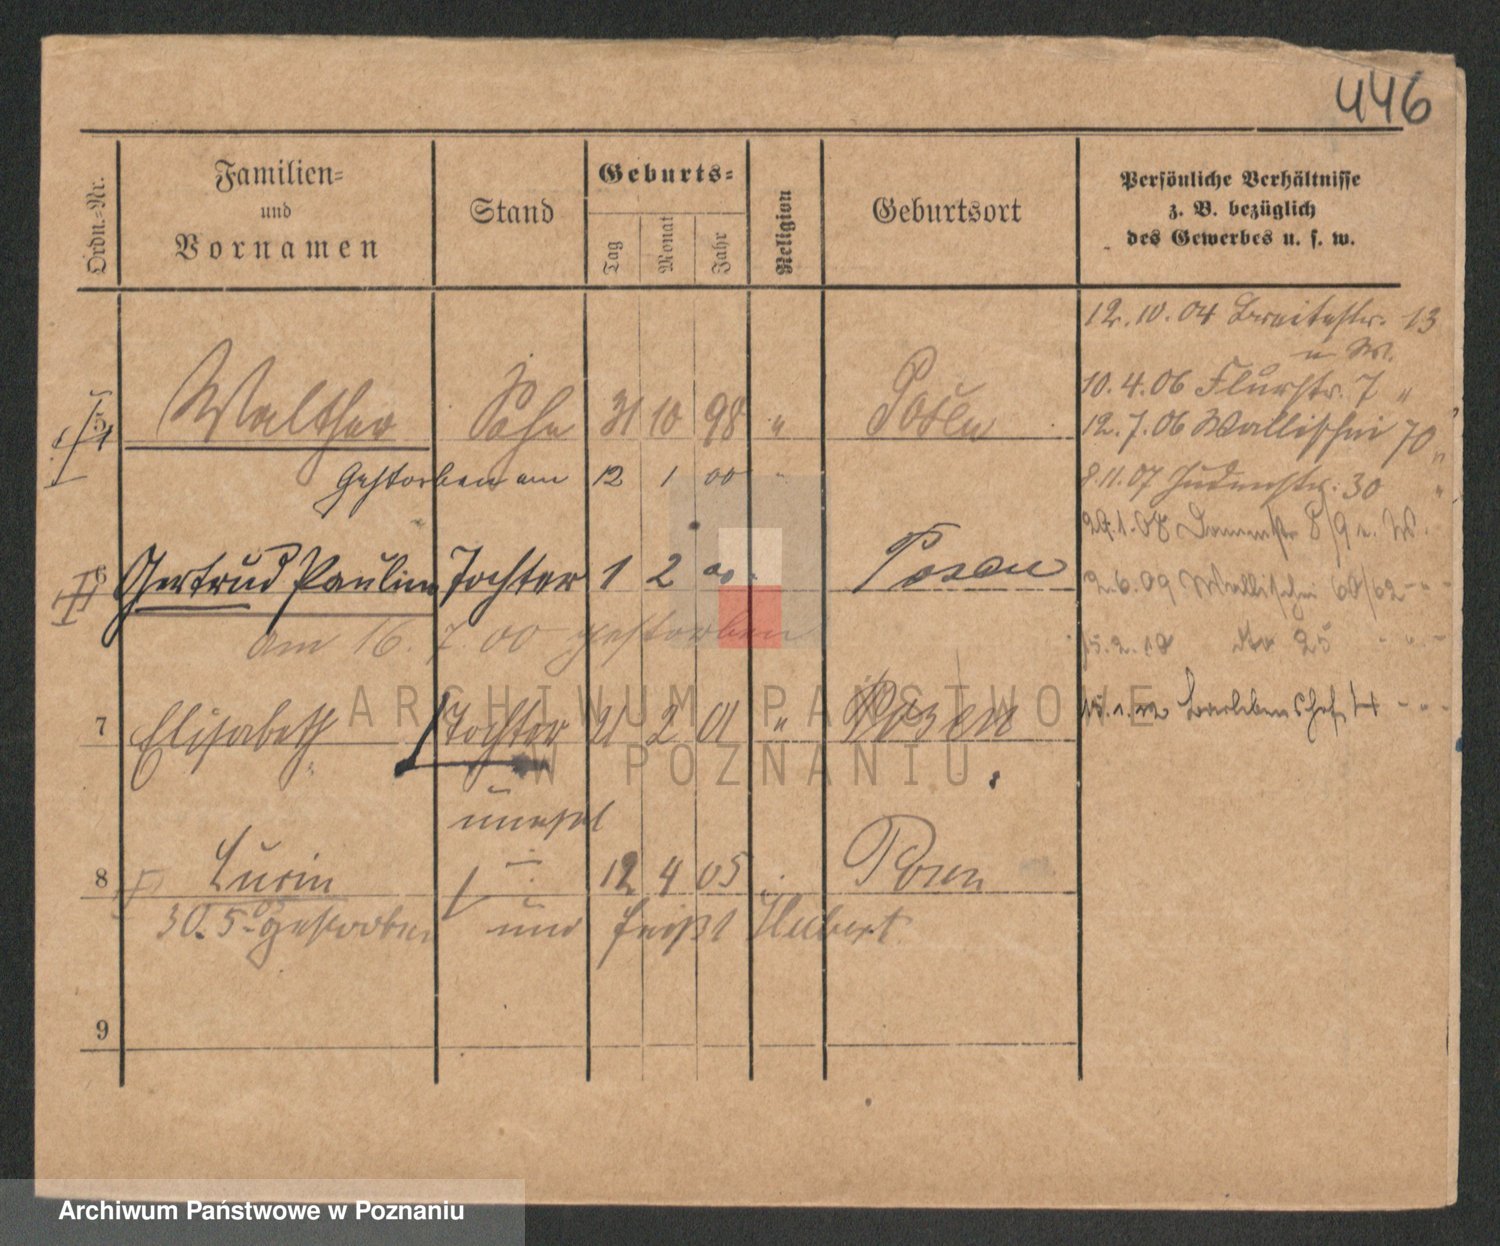 446
Ordn.-Nr.
Familien-
und
Vornamen
Stand
Geburts-
Tag
Monat
Jahr
Religion
Geburtsort
Persönliche Verhältnisse
z. B. bezüglich
des Gewerbes u. s. w.
12.10.04 Breitestr. 13
10.4.06 Flurstr. 7 "
5 Walther Sohn 31 10 98 " Posen
12.7.06 Wallischei 70 "
Gestorben am 12 1 00
8.11.07 Judenstr. 30 "
29.1.08 Dammstr 8/9 u. W.
6 Gertrud Pauline Tochter 1 2 00 Posen
2.6.09 Wallischei 60/62 " "
am 16. 7 00 gestorben
7 Elisabeth Tochter 21 2 01 " Posen
ARCHIWUM PAŃSTWOWE
W POZNANIU
unehel
8 12 4 05 Posen
30.5.05 gestorben und heißt Hubert
9
Archiwum Państwowe w Poznaniu